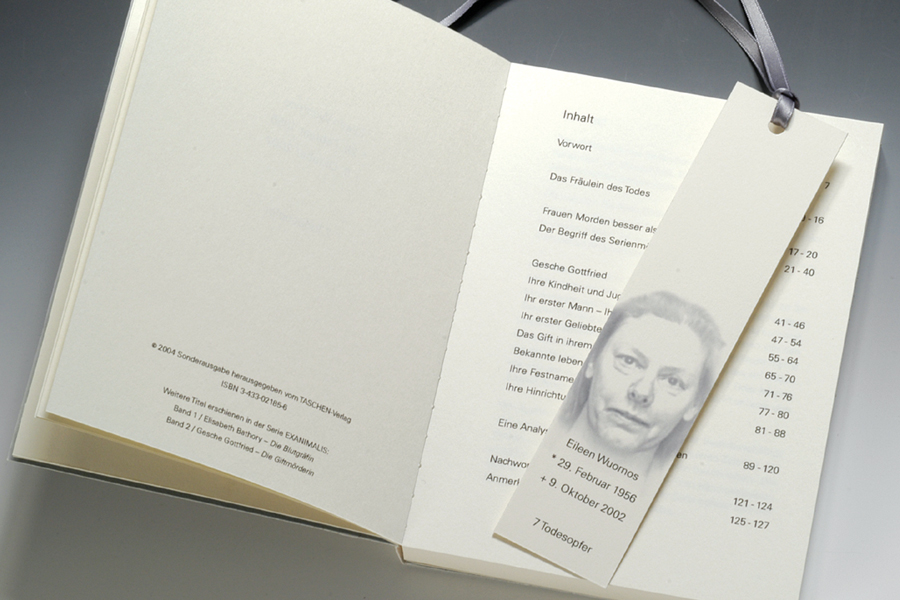 © 2004 Sonderausgabe herausgegeben vom TASCHEN-Verlag
ISBN 3-433-02185-6
Weitere Titel erschienen in der Serie EXANIMALIS:
Band 1 / Elisabeth Bathory – Die Blutgräfin
Band 2 / Gesche Gottfried – Die Giftmörderin
Inhalt
Vorwort 7
Das Fräulein des Todes -16
Frauen Morden besser als 17 - 20
Der Begriff des Serienm 21 - 40
Gesche Gottfried
Ihre Kindheit und Jug 41 - 46
Ihr erster Mann – Ih 47 - 54
Ihr erster Geliebte 55 - 64
Das Gift in ihrem 65 - 70
Bekannte leben 71 - 76
Ihre Festname 77 - 80
Ihre Hinrichtu 81 - 88
Eine Analy en 89 - 120
Nachwor 121 - 124
Anmerk 125 - 127
Eileen Wuornos
* 29. Februar 1956
+ 9. Oktober 2002
7 Todesopfer